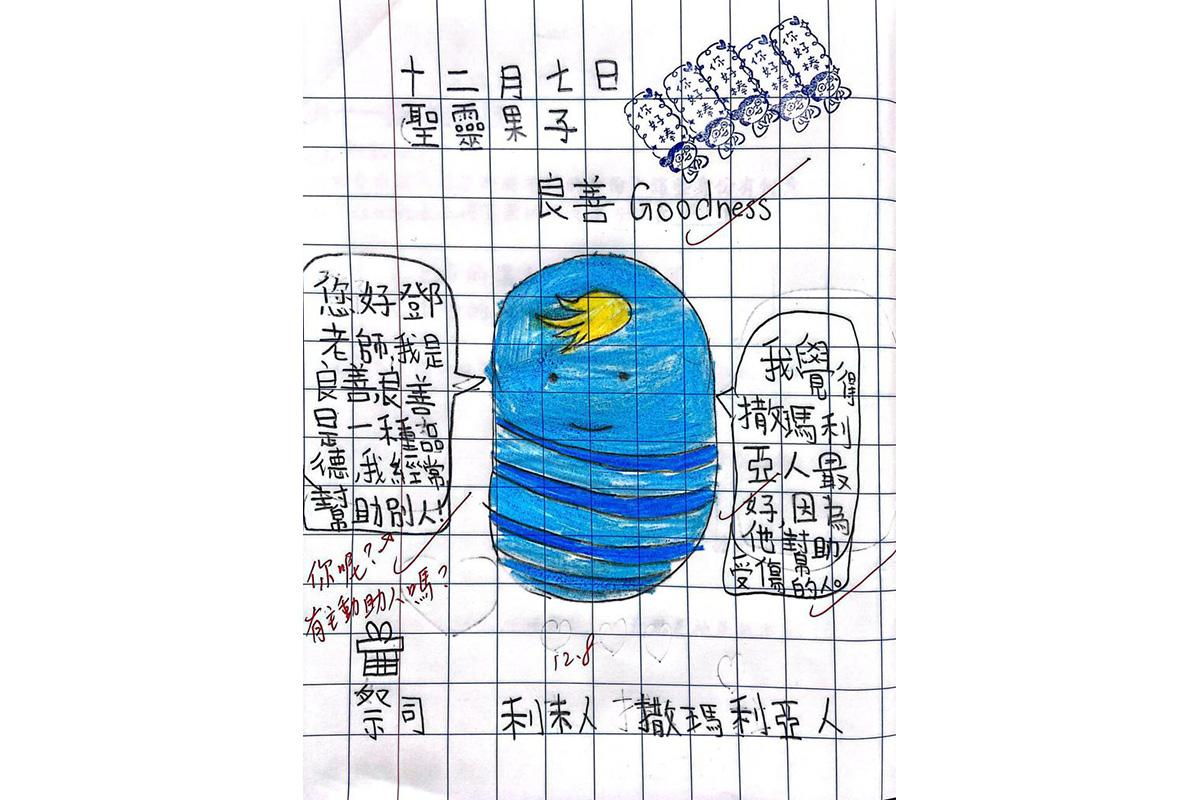 十二月七日
聖靈果子
你好棒
你好棒
你好棒
你好棒
你好棒
良善 Goodness
您好鄧
老師,我是
良善,良善
是一種品
德,我經常
幫助別人!
你呢?
有主動助人嗎?
我覺得
撒瑪利
亞人最
好,因為
他幫助
受傷的人。
12.8
祭司 利未人 撒瑪利亞人